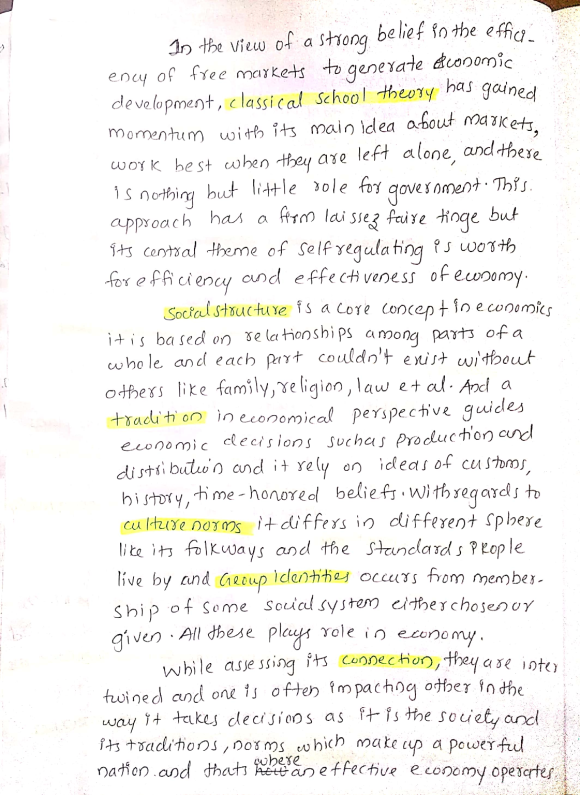 In the view of a strong belief in the effici-
ency of free markets to generate economic
development, classical school theory has gained
momentum with its main idea about markets,
work best when they are left alone, and there
is nothing but little role for government. This
approach has a firm laissez faire tinge but
its central theme of self regulating is worth
for efficiency and effectiveness of economy.
Social structure is a core concept in economics
it is based on relationships among parts of a
whole and each part couldn't exist without
others like family, religion, law et al. And a
tradition in economical perspective guides
economic decisions such as production and
distribution and it rely on ideas of customs,
history, time-honored beliefs. With regards to
culture norms it differs in different sphere
like its folkways and the standards people
live by and Group identities occurs from member-
ship of some social system either chosen or
given. All these plays role in economy.
While assessing its connection, they are inter
twined and one is often impacting other in the
way it takes decisions as it is the society and
its traditions, norms which make up a powerful
nation. and thats where an effective economy operates